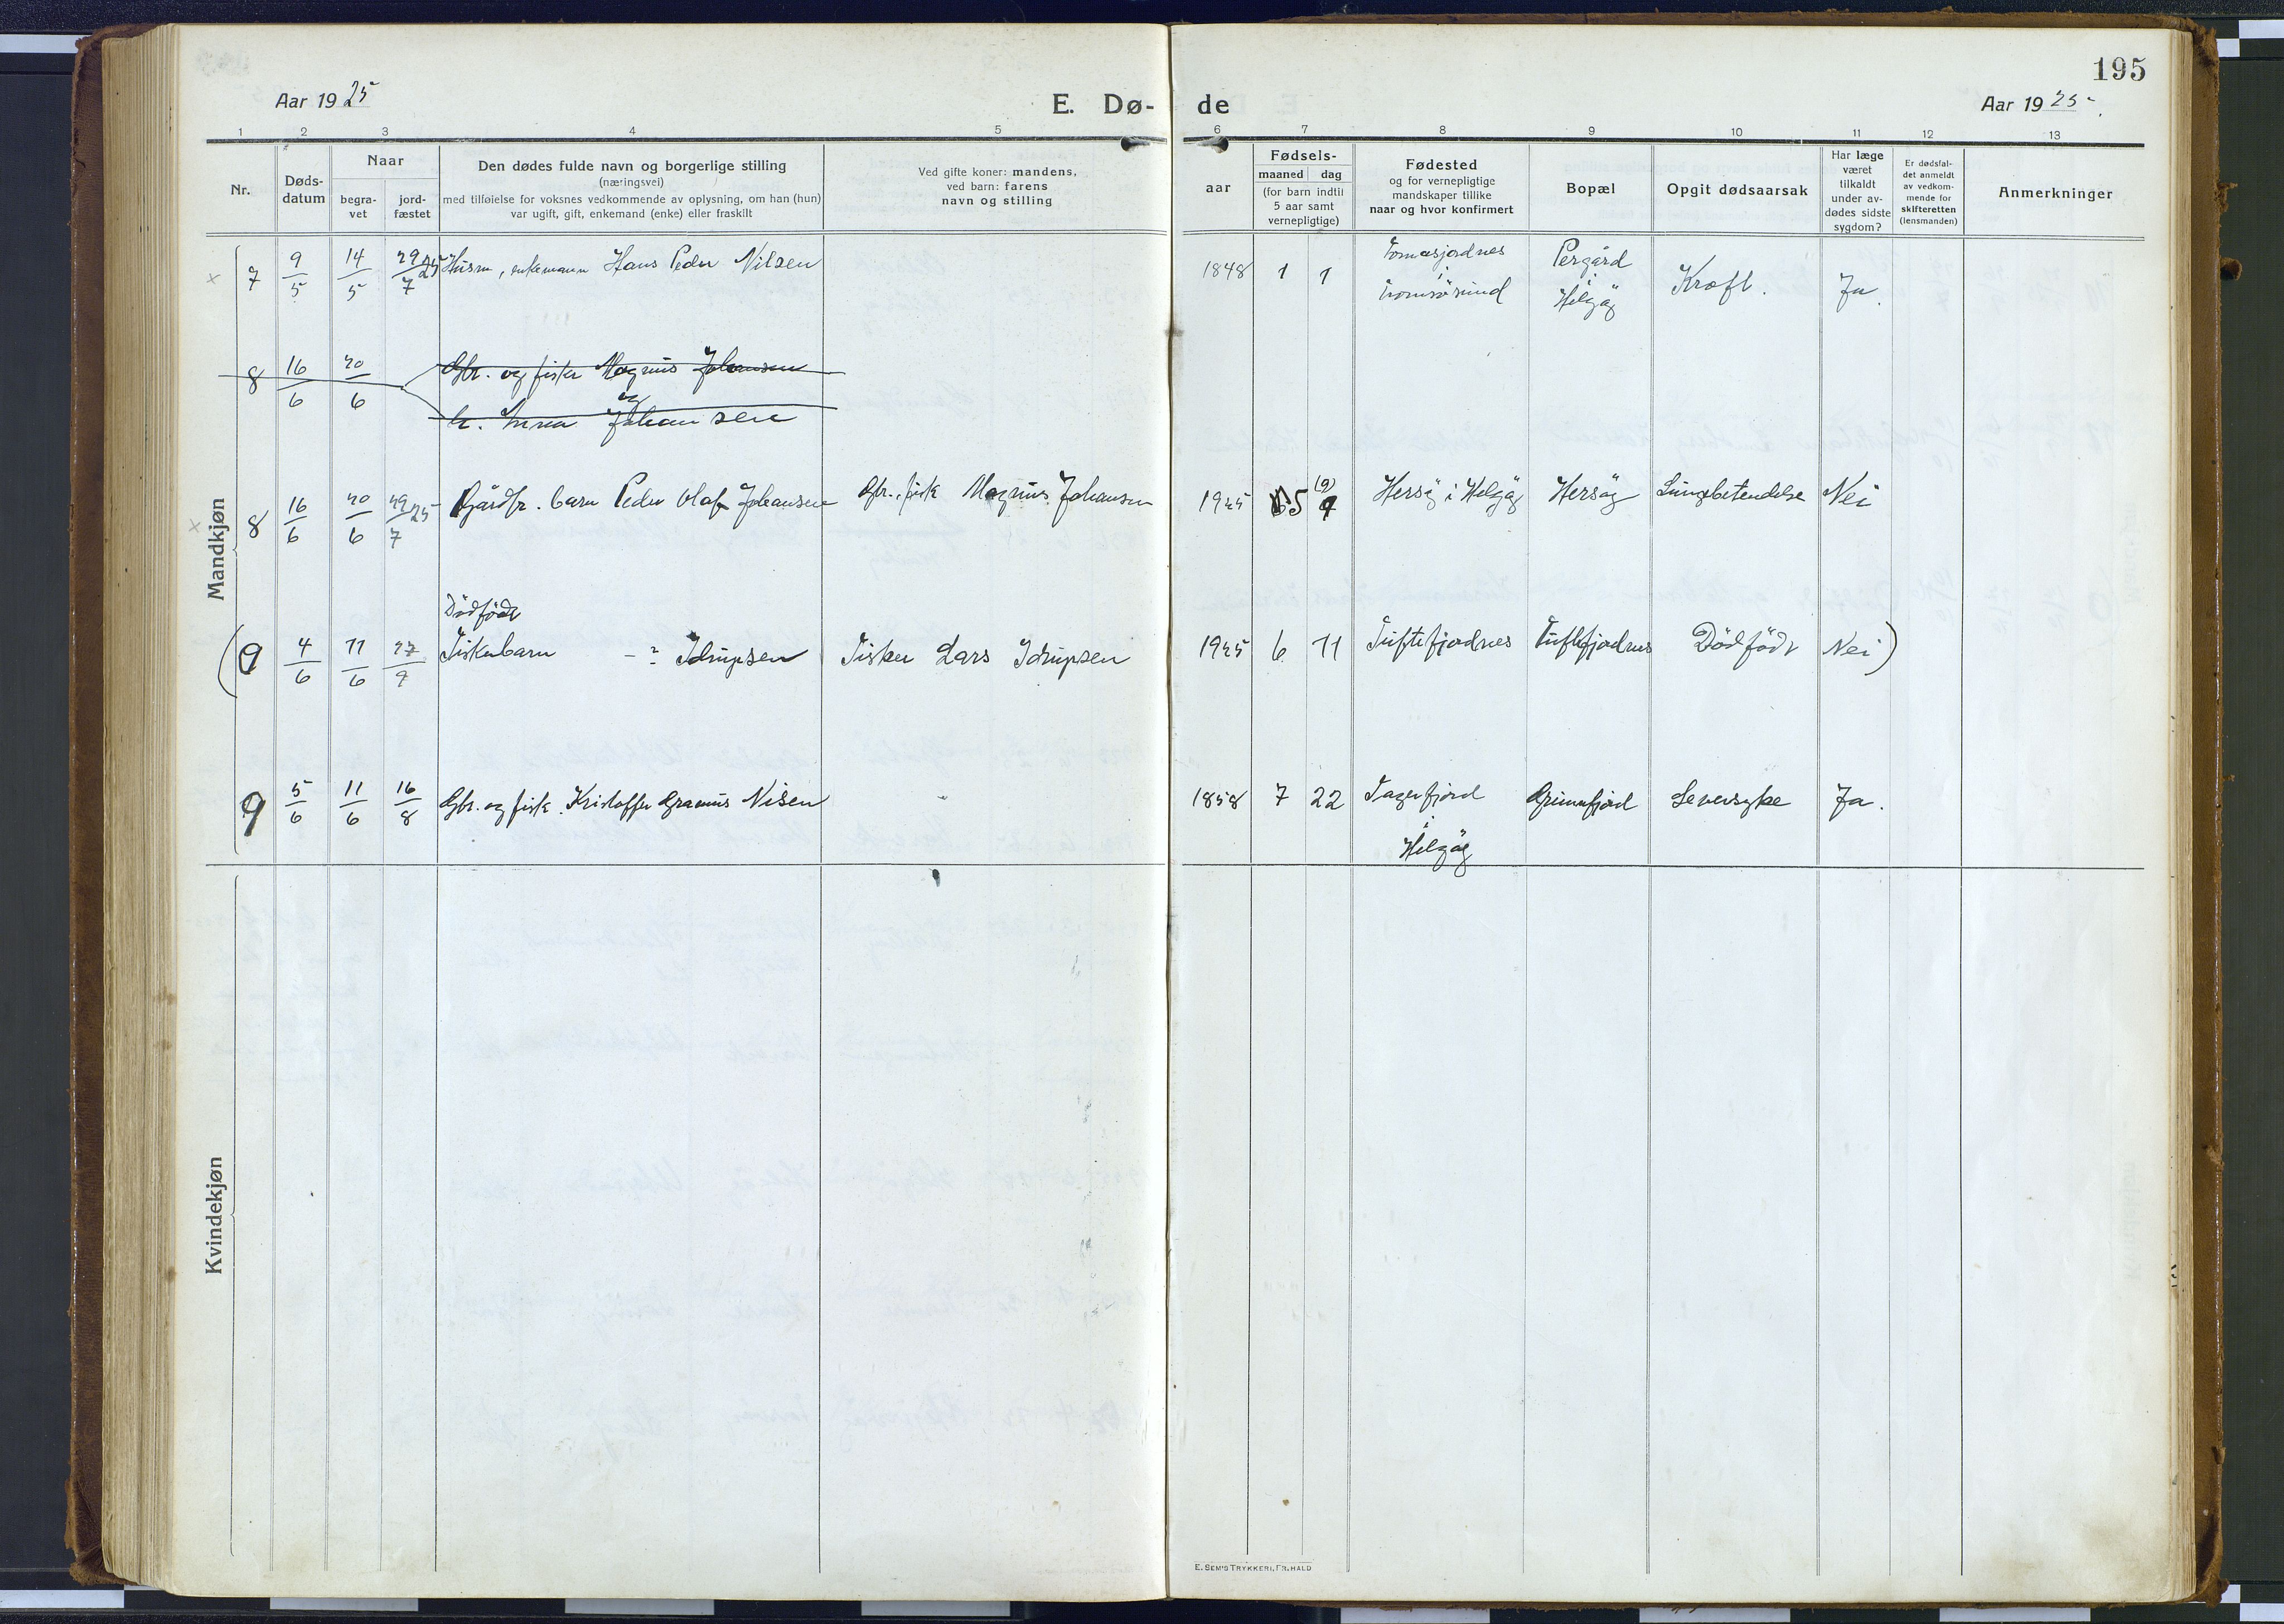 195
Aar 1925
E. Dø-
de
Aar 1925.
1 2 3 4 5 6 7 8 9 10 11 12 13
Nr.
Døds-
datum
Naar
begra-
vet
jord-
fæstet
Den dødes fulde navn og borgerlige stilling
(næringsvei)
med tilføielse for voksnes vedkommende av oplysning, om han (hun)
var ugift, gift, enkemand (enke) eller fraskilt
Ved gifte koner: mandens,
ved barn: farens
navn og stilling
aar
Fødsels-
maaned dag
(for barn indtil
5 aar samt
vernepligtige)
Fødested
og for vernepligtige
mandskaper tillike
naar og hvor konfirmert
Bopæl
Opgit dødsaarsak
Har læge
været
tilkaldt
under av-
dødes sidste
sygdom?
Er dødsfal-
det anmeldt
av vedkom-
mende for
skifteretten
(lensmanden)
Anmerkninger
Mandkjøn
× 7 9/5 14/5 29/7 25 Husm, enkemann Hans Peder Nilsen 1848 1 1 Tomasjordnes i Tromsøsund Pergård i Helgøy Kræft. Ja.
8 16/6 20/6 Gbr. og fisker Magnus Johansen
og
h. Anna Johansen
× 8 16/6 20/6 29/7 25 Gårdbr. barn Peder Olaf Johansen Gbr., fisk Magnus Johansen 1925 5 (9) 9 Hersøy i Helgøy Hersøy Lungebetendelse Nei
Dödfödt
(9 4/6 11/6 27/9 Fiskerbarn - ? Idrupsen Fisker Lars Idrupsen 1925 6 11 Tuftefjordnes Tuftefjordnes Dödfödt Nei)
9 5/6 11/6 16/8 Gbr. og fisk. Kristoffer Graenus Nilsen 1858 7 22 Tagerfjord i Helgøy Grunnfjord Leversyke Ja.
Kvindekjøn
E. SEM'S TRYKKERI, FR.HALD